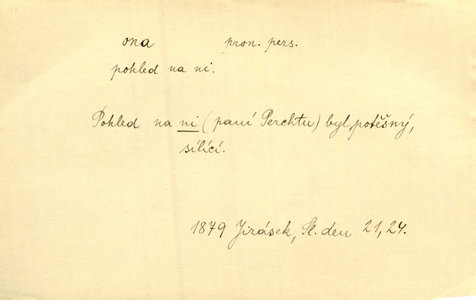 ona pron. pers.
pohled na ni.
Pohled na ni (paní Perchtu) byl potěšný,
sílící.
1879 Jirásek, Sl. den 21, 24.